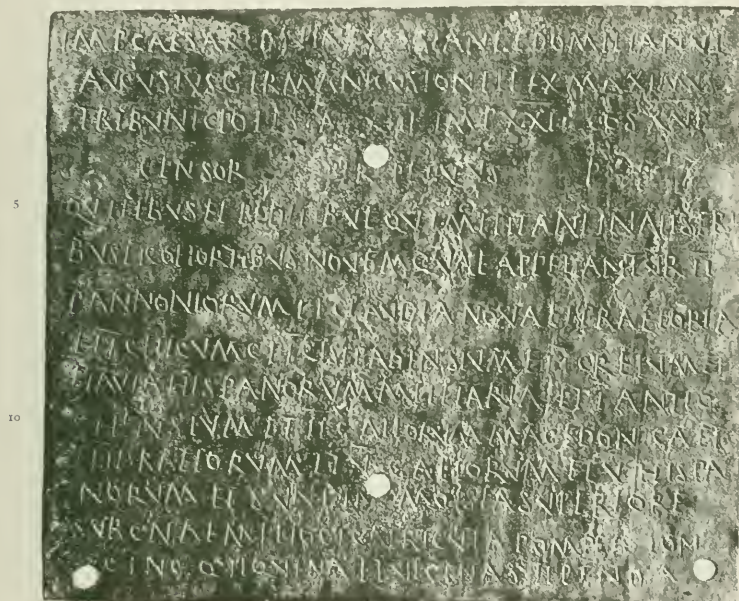 IMP CAESAR DIVI VESPASIANI F DOMITIANVS
AVGVSTVS GERMANICVS PONTIFEX MAXIMVS
TRIBVNIC POTEST IMP XXII COS XVI
CENSOR PERPETVVS P P
EQVITIBVS ET PEDITIBVS QVI MILITANT IN ALIS TRI
BVS ET COHORTIBVS NOVEM QVAE APPELLANTVR II
PANNONIORVM ET CLAVDIA NOVA ET PRAETORIA
ET I CILICVM ET I CISIPADENSIVM ET I CRETVM ET I
FLAVIA HISPANORVM MILLIARIA ET I ANTIO
CHENSIVM ET II GALLORVM MACEDONICA ET
RAETORVM ET V GALLORVM ET V HISPA
NORVM ET SVNT IN MOESIA SVPERIORE
SVB CN AEMILIO CICATRICVLA POMPEIO LON
GINO QVI QVINA ET VICENA STIPENDIA
5
10